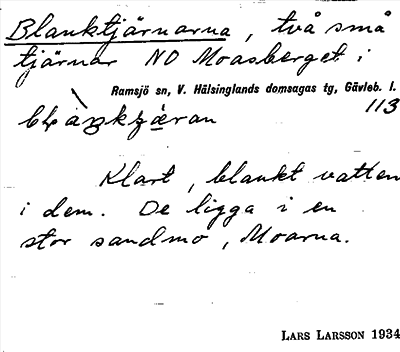 Blanktjärnarna, två små
tjärnar NO Moasberget i
Ramsjö sn, V. Hälsinglands domsagas tg, Gävleb. l.
113
Klart, blankt vatten
i dem. De ligga i en
stor sandmo, Moarna.
LARS LARSSON 1934